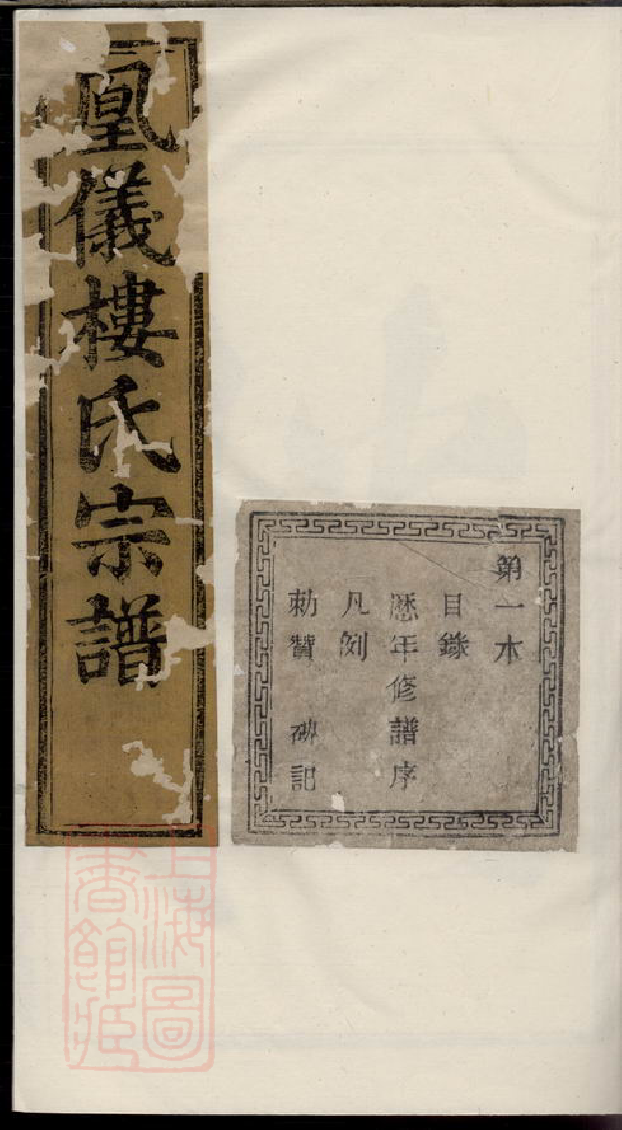 凰儀樓氏宗譜
第一本
目錄
歷年修譜序
凡例
勅贊 碑記
上海圖書館藏